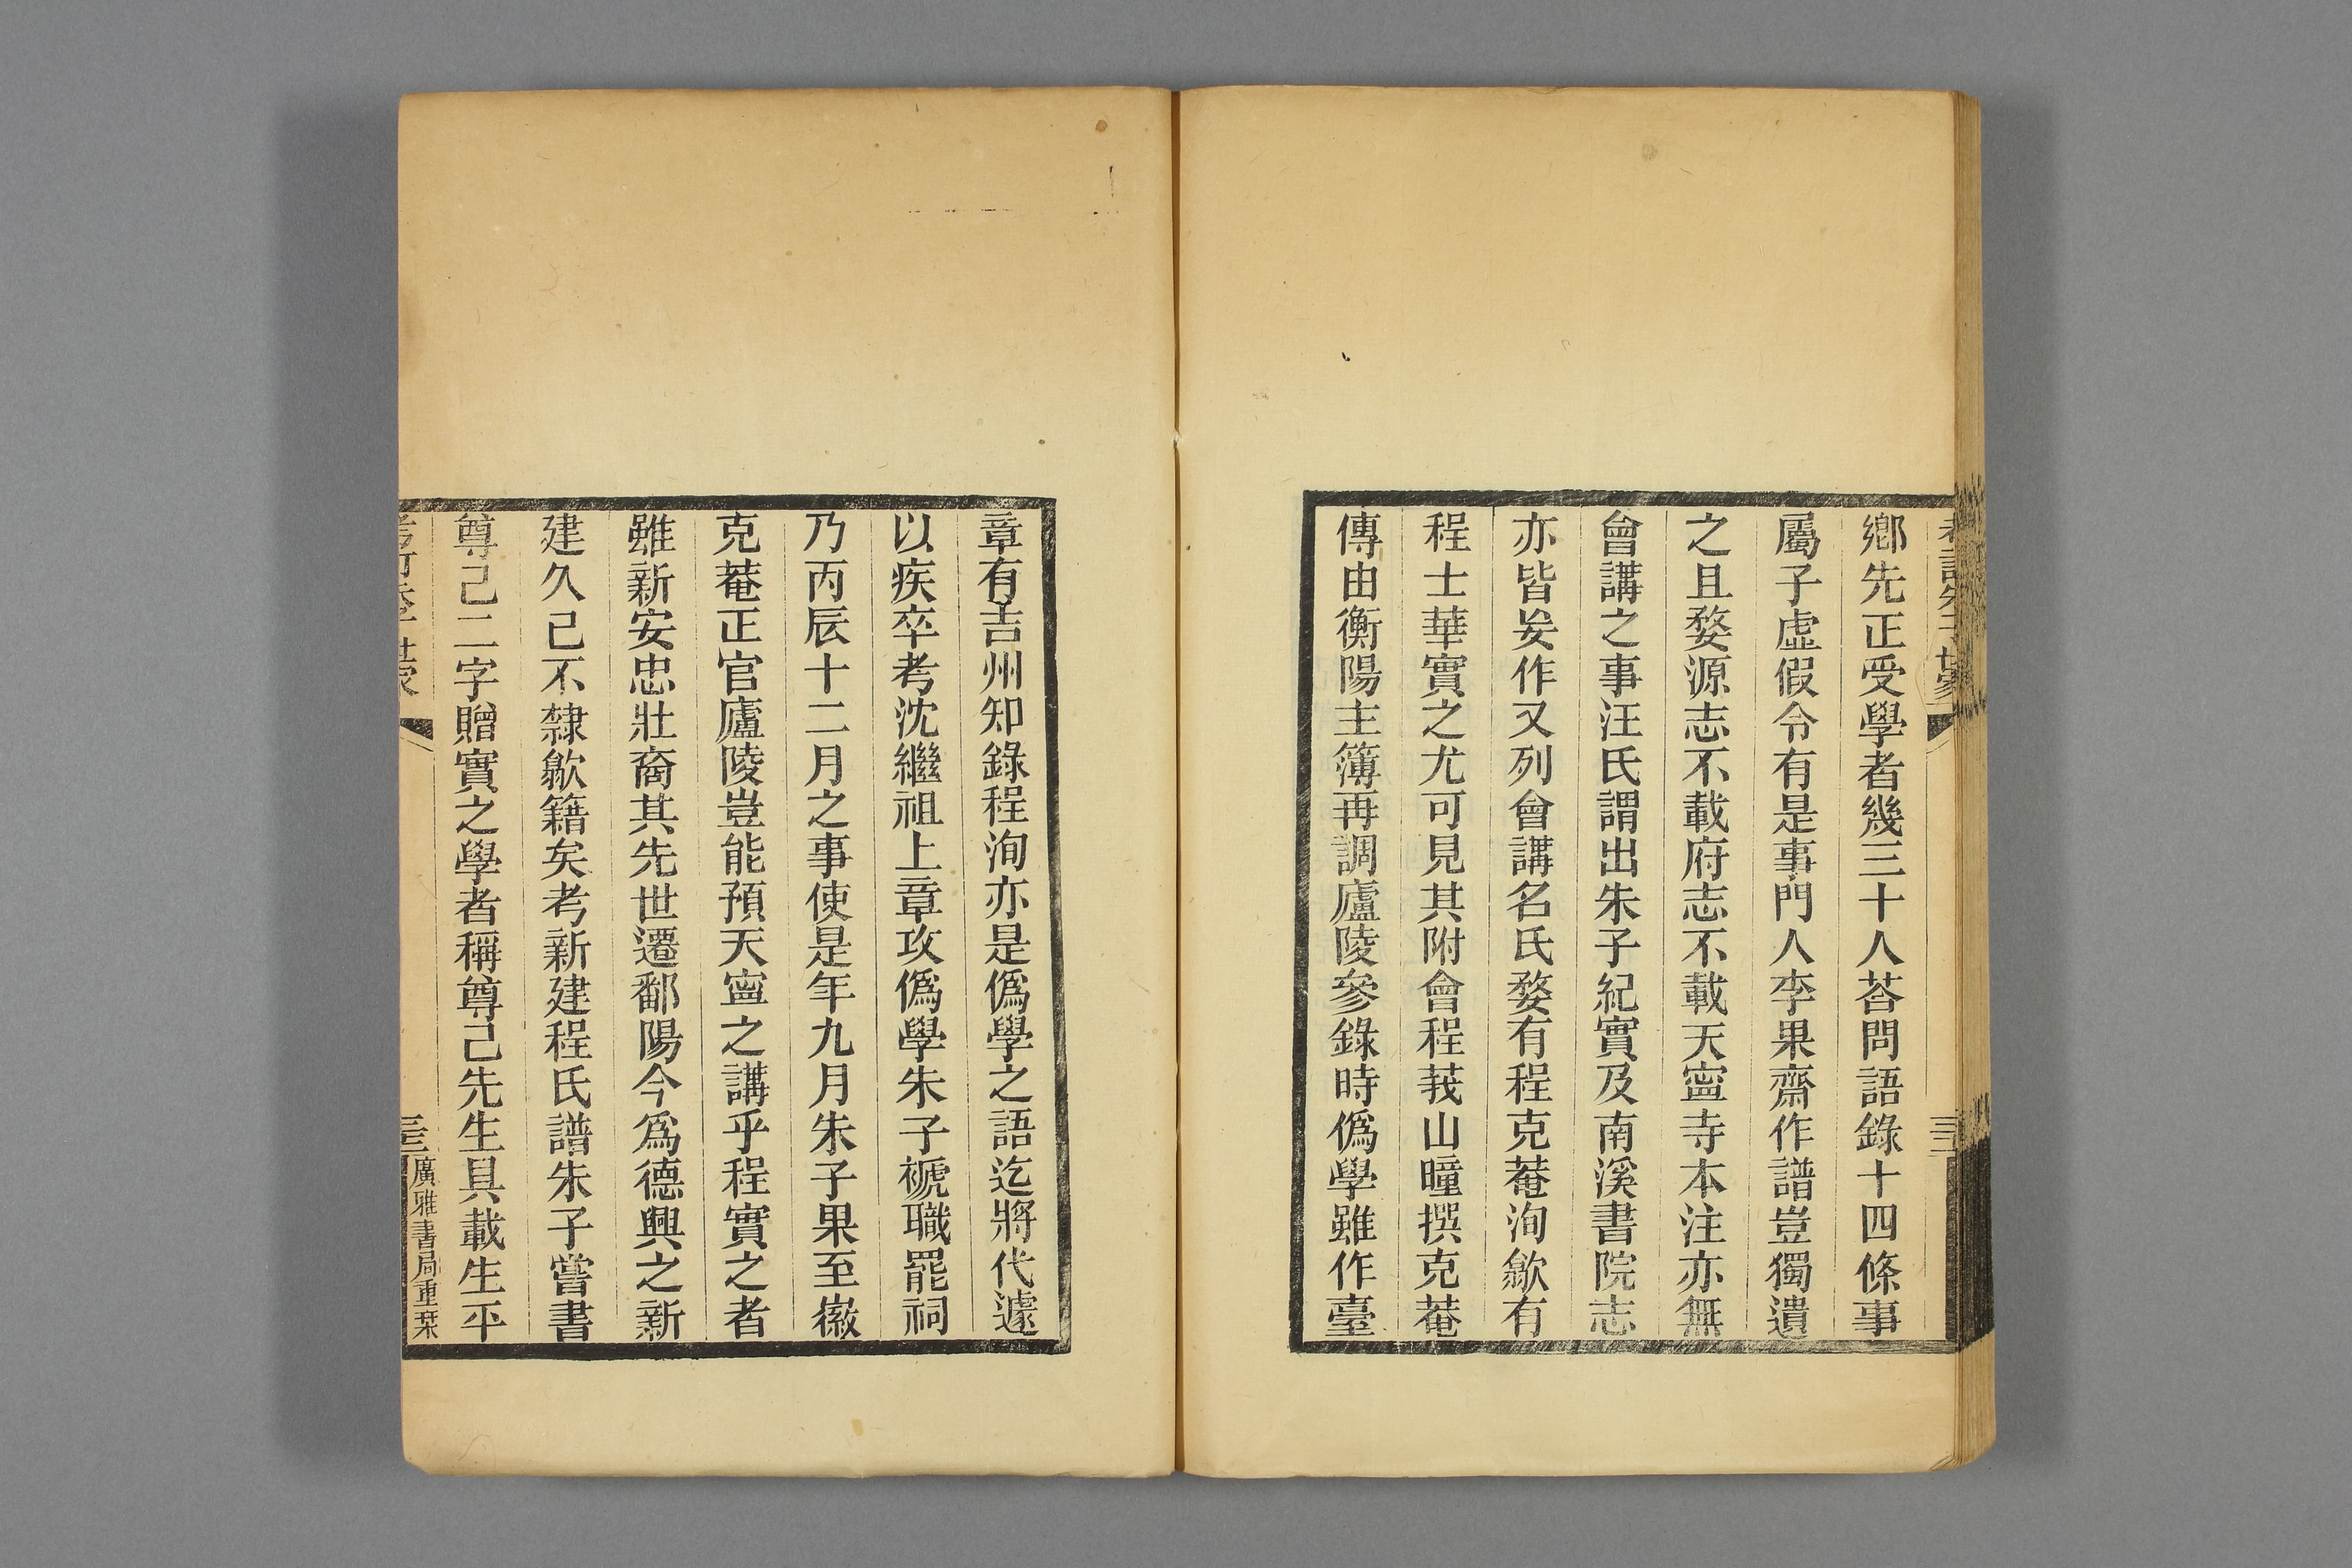 鄉先正受學者幾三十人荅問語錄十四條事
屬子虛假令有是事門人李果齋作譜豈獨遺
之且婺源志不載府志不載天寧寺本注亦無
會講之事汪氏謂出朱子紀實及南溪書院志
亦皆妄作又列會講名氏婺有程克菴洵歙有
程士華實之尤可見其附會程莪山曈撰克菴
傳由衡陽主簿再調廬陵參錄時僞學雖作臺
章有吉州知錄程洵亦是僞學之語迄將代遽
以疾卒考沈繼祖上章攻僞學朱子褫職罷祠
乃丙辰十二月之事使是年九月朱子果至徽
克菴正官廬陵豈能預天寧之講乎程實之者
雖新安忠壯裔其先世遷鄱陽今爲德興之新
建久已不隸歙籍矣考新建程氏譜朱子嘗書
尊己二字贈實之學者稱尊己先生具載生平
廣雅書局重栞